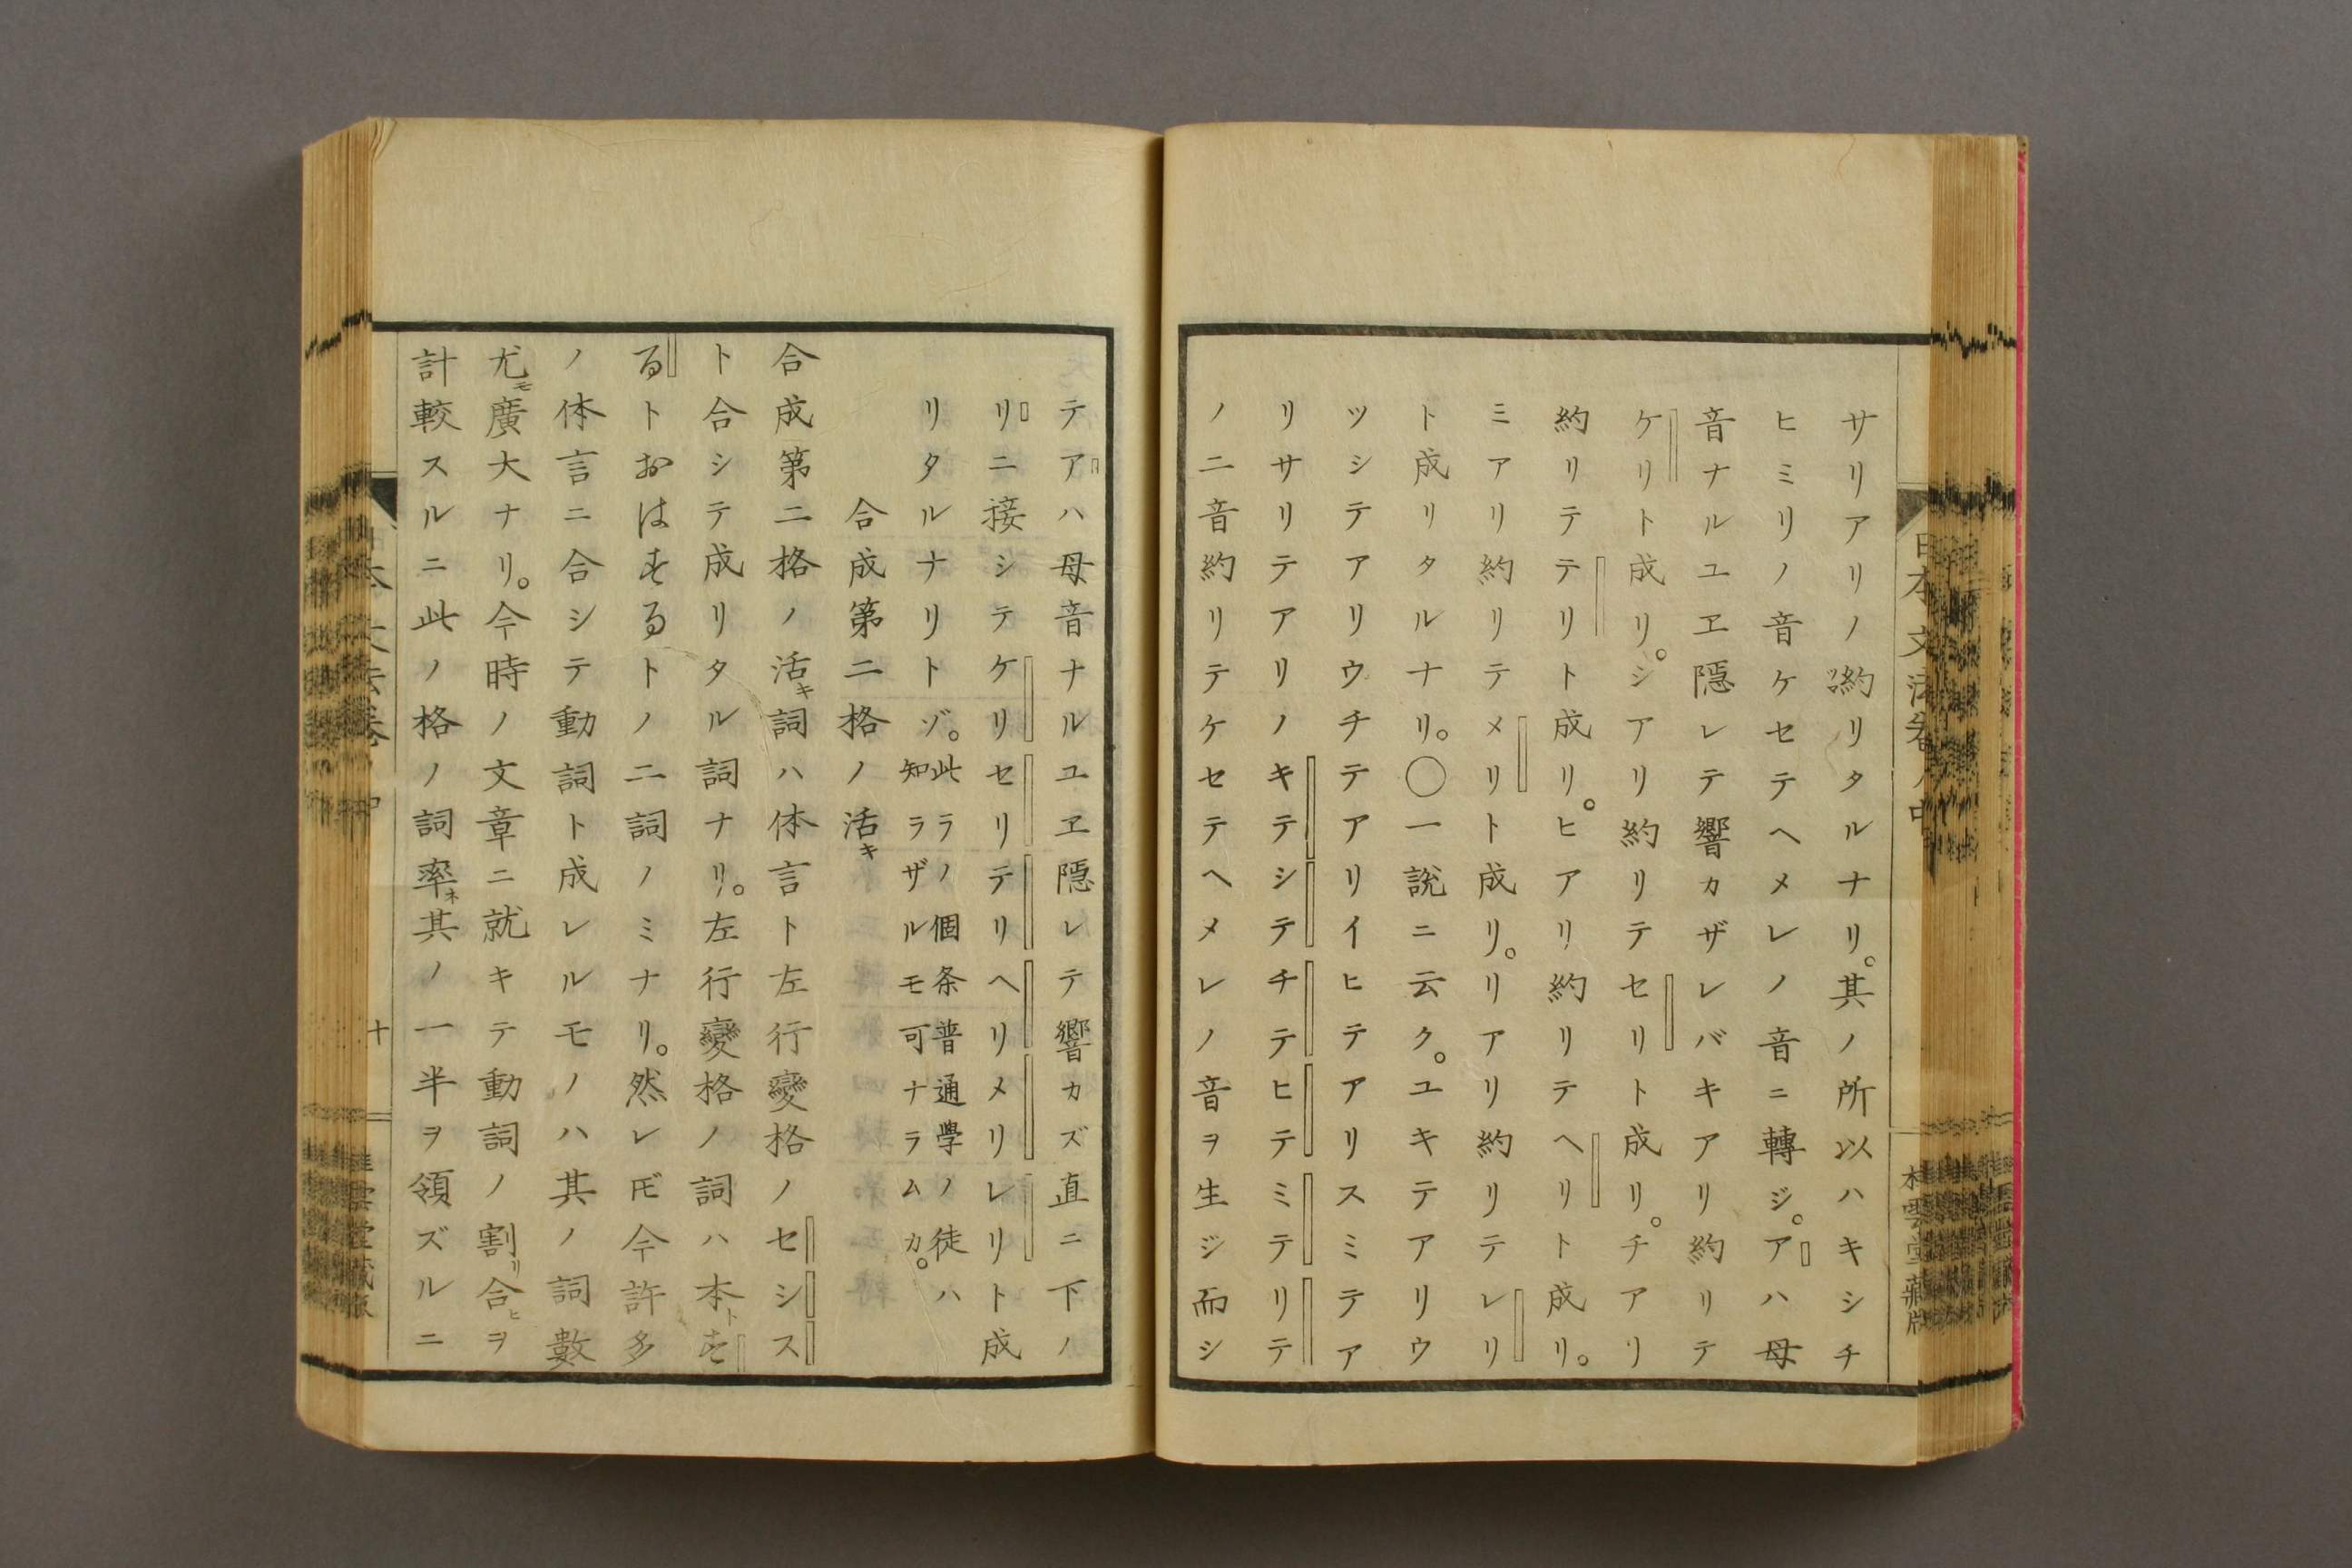 サリアリノ約リタルナリ。其ノ所以ハキシチ
ヒミリノ音ケセテヘメレノ音ニ轉ジ。アハ母
音ナルユヱ隱レテ響カザレバキアリ約リテ
ケリト成リ。シアリ約リテセリト成リ。チアリ
約リテテリト成リ。ヒアリ約リテヘリト成リ。
ミアリ約リテメリト成リ。リアリ約リテレリ
ト成リタルナリ。〇一說ニ云ク。ユキテアリウ
ツシテアリウチテアリイヒテアリスミテア
リサリテアリノキテシテチテヒテミテリテ
ノ二音約リテケセテヘメレノ音ヲ生ジ而シ
テアハ母音ナルユヱ隱レテ響カズ直ニ下ノ
リニ接シテケリセリテリヘリメリレリト成
リタルナリトゾ。此ラノ個条普通學ノ徒ハ
知ラザルモ可ナラムカ。
合成第二格ノ活キ
合成第二格ノ活キ詞ハ体言ト左行變格ノセシス
ト合シテ成リタル詞ナリ。左行變格ノ詞ハ本ト
るトおはするトノ二詞ノミナリ。然レ𪜈今許多
ノ体言ニ合シテ動詞ト成レルモノハ其ノ詞數
尤モ廣大ナリ。今時ノ文章ニ就キテ動詞ノ割リ合ヒヲ
計較スルニ此ノ格ノ詞率ネ其ノ一半ヲ領ズルニ
十